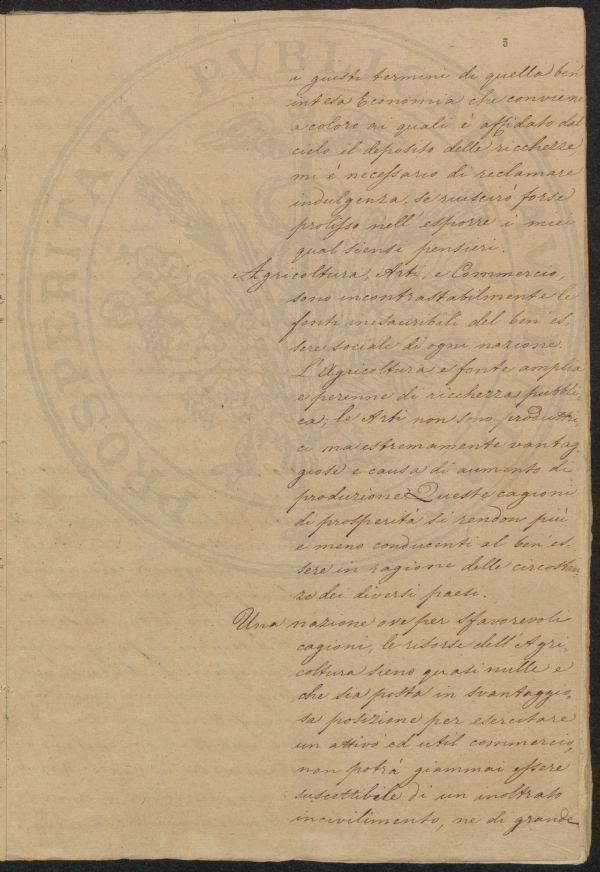 5
a giusti termini di quella ben
intesa Economia che conviene
a coloro ai quali è affidato dal
cielo il deposito delle ricchezze
mi è necessario di reclamare
indulgenza, se riuscirò forse
prolisso nell'esporre i miei
qual siensi pensieri.
Agricoltura, Arti, e Commercio,
sono incontrastabilmente le
fonti inesauribili del ben'es-
sere sociale di ogni nazione.
L'Agricoltura è fonte amplia
e perenne di ricchezza pubbli-
ca; le Arti non sono produttri-
ci ma estremamente vantag-
giose e causa di aumento di
produzione. Queste cagioni
di prosperità si rendon più
e meno conducenti al ben'es-
sere in ragione delle circostan-
ze dei diversi paesi.
Una nazione ove per sfavorevoli
cagioni, le risorse dell'Agri-
coltura sieno quasi nulle e
che sia posta in svantaggio-
sa posizione per esercitare
un attivo ed util commercio,
non potrà giammai essere
suscettibile di un inoltrato
incivilimento, ne di grande
PROSPERITATI PUBLICAE